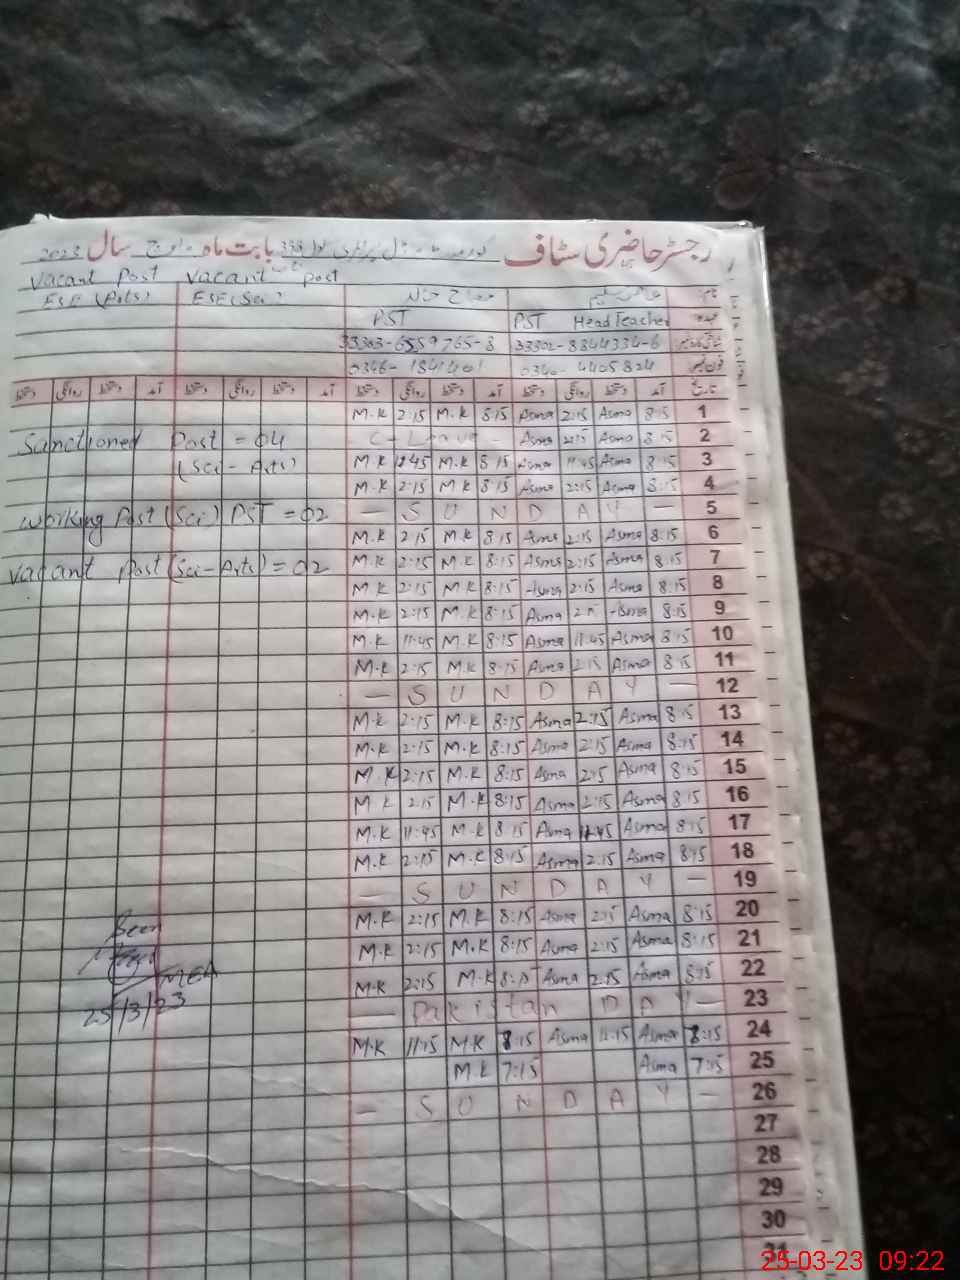 رجسٹر حاضری سٹاف بابت ماہ مارچ سال 2023
Vacant Post Vacant post
ESE (Arts) ESE (Sci)
PST PST Head Teacher
0346-1841401 0340-4405824
تاریخ آمد دستخط روانگی دستخط آمد دستخط روانگی دستخط آمد دستخط روانگی دستخط
M.K 2:15 M.K 8:15 Asma 2:15 Asma 8:15 1
Sanctioned Post = 04 C-Leave Asma 2:15 Asma 8:15 2
(Sci-Arts) M.K 11:45 M.K 8:15 Asma 11:45 Asma 8:15 3
M.K 2:15 M.K 8:15 Asma 2:15 Asma 8:15 4
Working Post (Sci) PST = 02 — S U N D A Y — 5
M.K 2:15 M.K 8:15 Asma 2:15 Asma 8:15 6
Vacant Post (Sci-Arts) = 02 M.K 2:15 M.K 8:15 Asma 2:15 Asma 8:15 7
M.K 2:15 M.K 8:15 Asma 2:15 Asma 8:15 8
M.K 2:15 M.K 8:15 Asma 2:15 Asma 8:15 9
M.K 11:45 M.K 8:15 Asma 11:45 Asma 8:15 10
M.K 2:15 M.K 8:15 Asma 2:15 Asma 8:15 11
— S U N D A Y — 12
M.K 2:15 M.K 8:15 Asma 2:15 Asma 8:15 13
M.K 2:15 M.K 8:15 Asma 2:15 Asma 8:15 14
M.K 2:15 M.K 8:15 Asma 2:15 Asma 8:15 15
M.K 2:15 M.K 8:15 Asma 2:15 Asma 8:15 16
M.K 11:45 M.K 8:15 Asma 11:45 Asma 8:15 17
M.K 2:15 M.K 8:15 Asma 2:15 Asma 8:15 18
— S U N D A Y — 19
Seen M.K 2:15 M.K 8:15 Asma 2:15 Asma 8:15 20
M.K 2:15 M.K 8:15 Asma 2:15 Asma 8:15 21
MEA M.K 2:15 M.K 8:15 Asma 2:15 Asma 8:15 22
25/3/23 — Pakistan DAY — 23
M.K 11:15 M.K 8:15 Asma 11:15 Asma 8:15 24
M.K 7:15 Asma 7:15 25
— S U N D A Y — 26
27
28
29
30
31
25-03-23 09:22